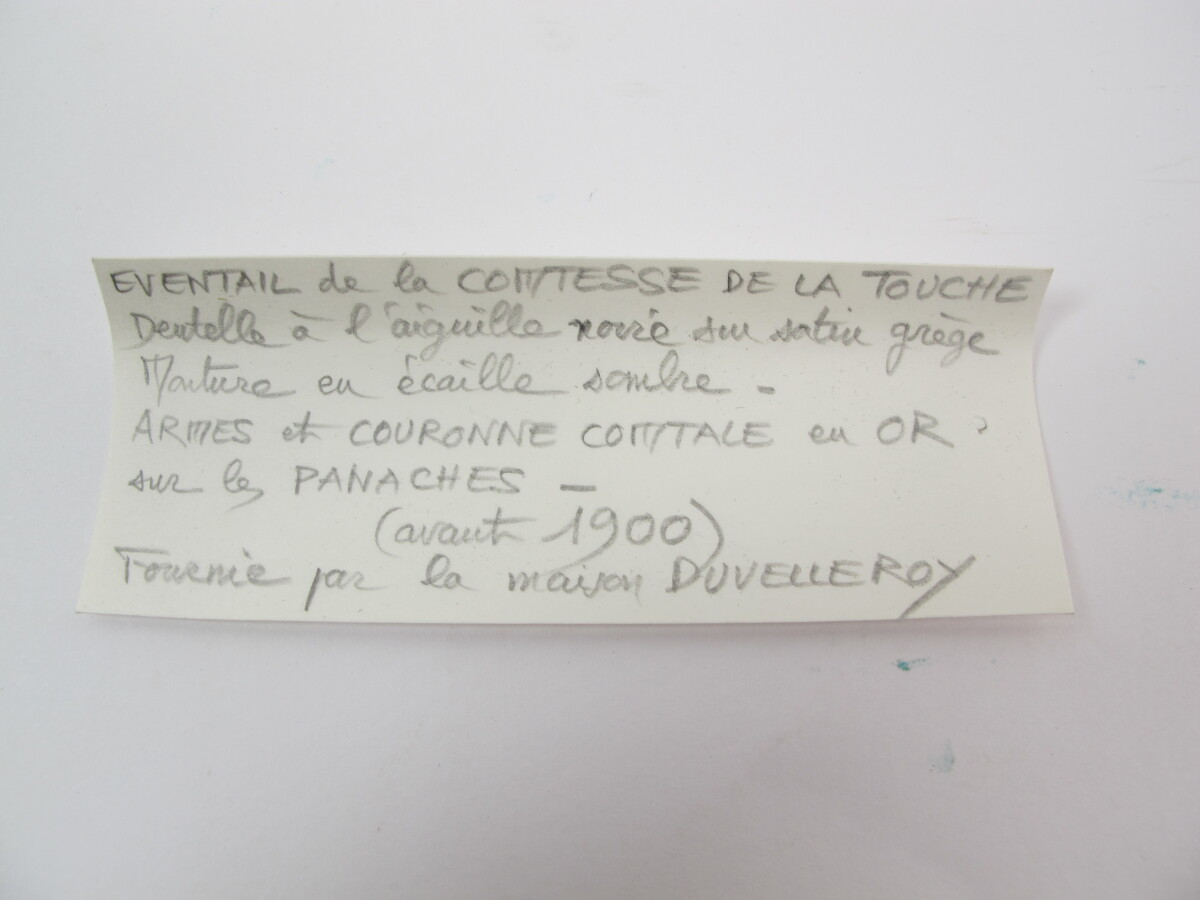 EVENTAIL de la COMTESSE DE LA TOUCHE
Dentelle à l'aiguille noire sur satin grège
Monture en écaille sombre -
ARMES et COURONNE COMTALE en OR
sur les PANACHES —
(avant 1900)
Fournie par la maison DUVELLEROY